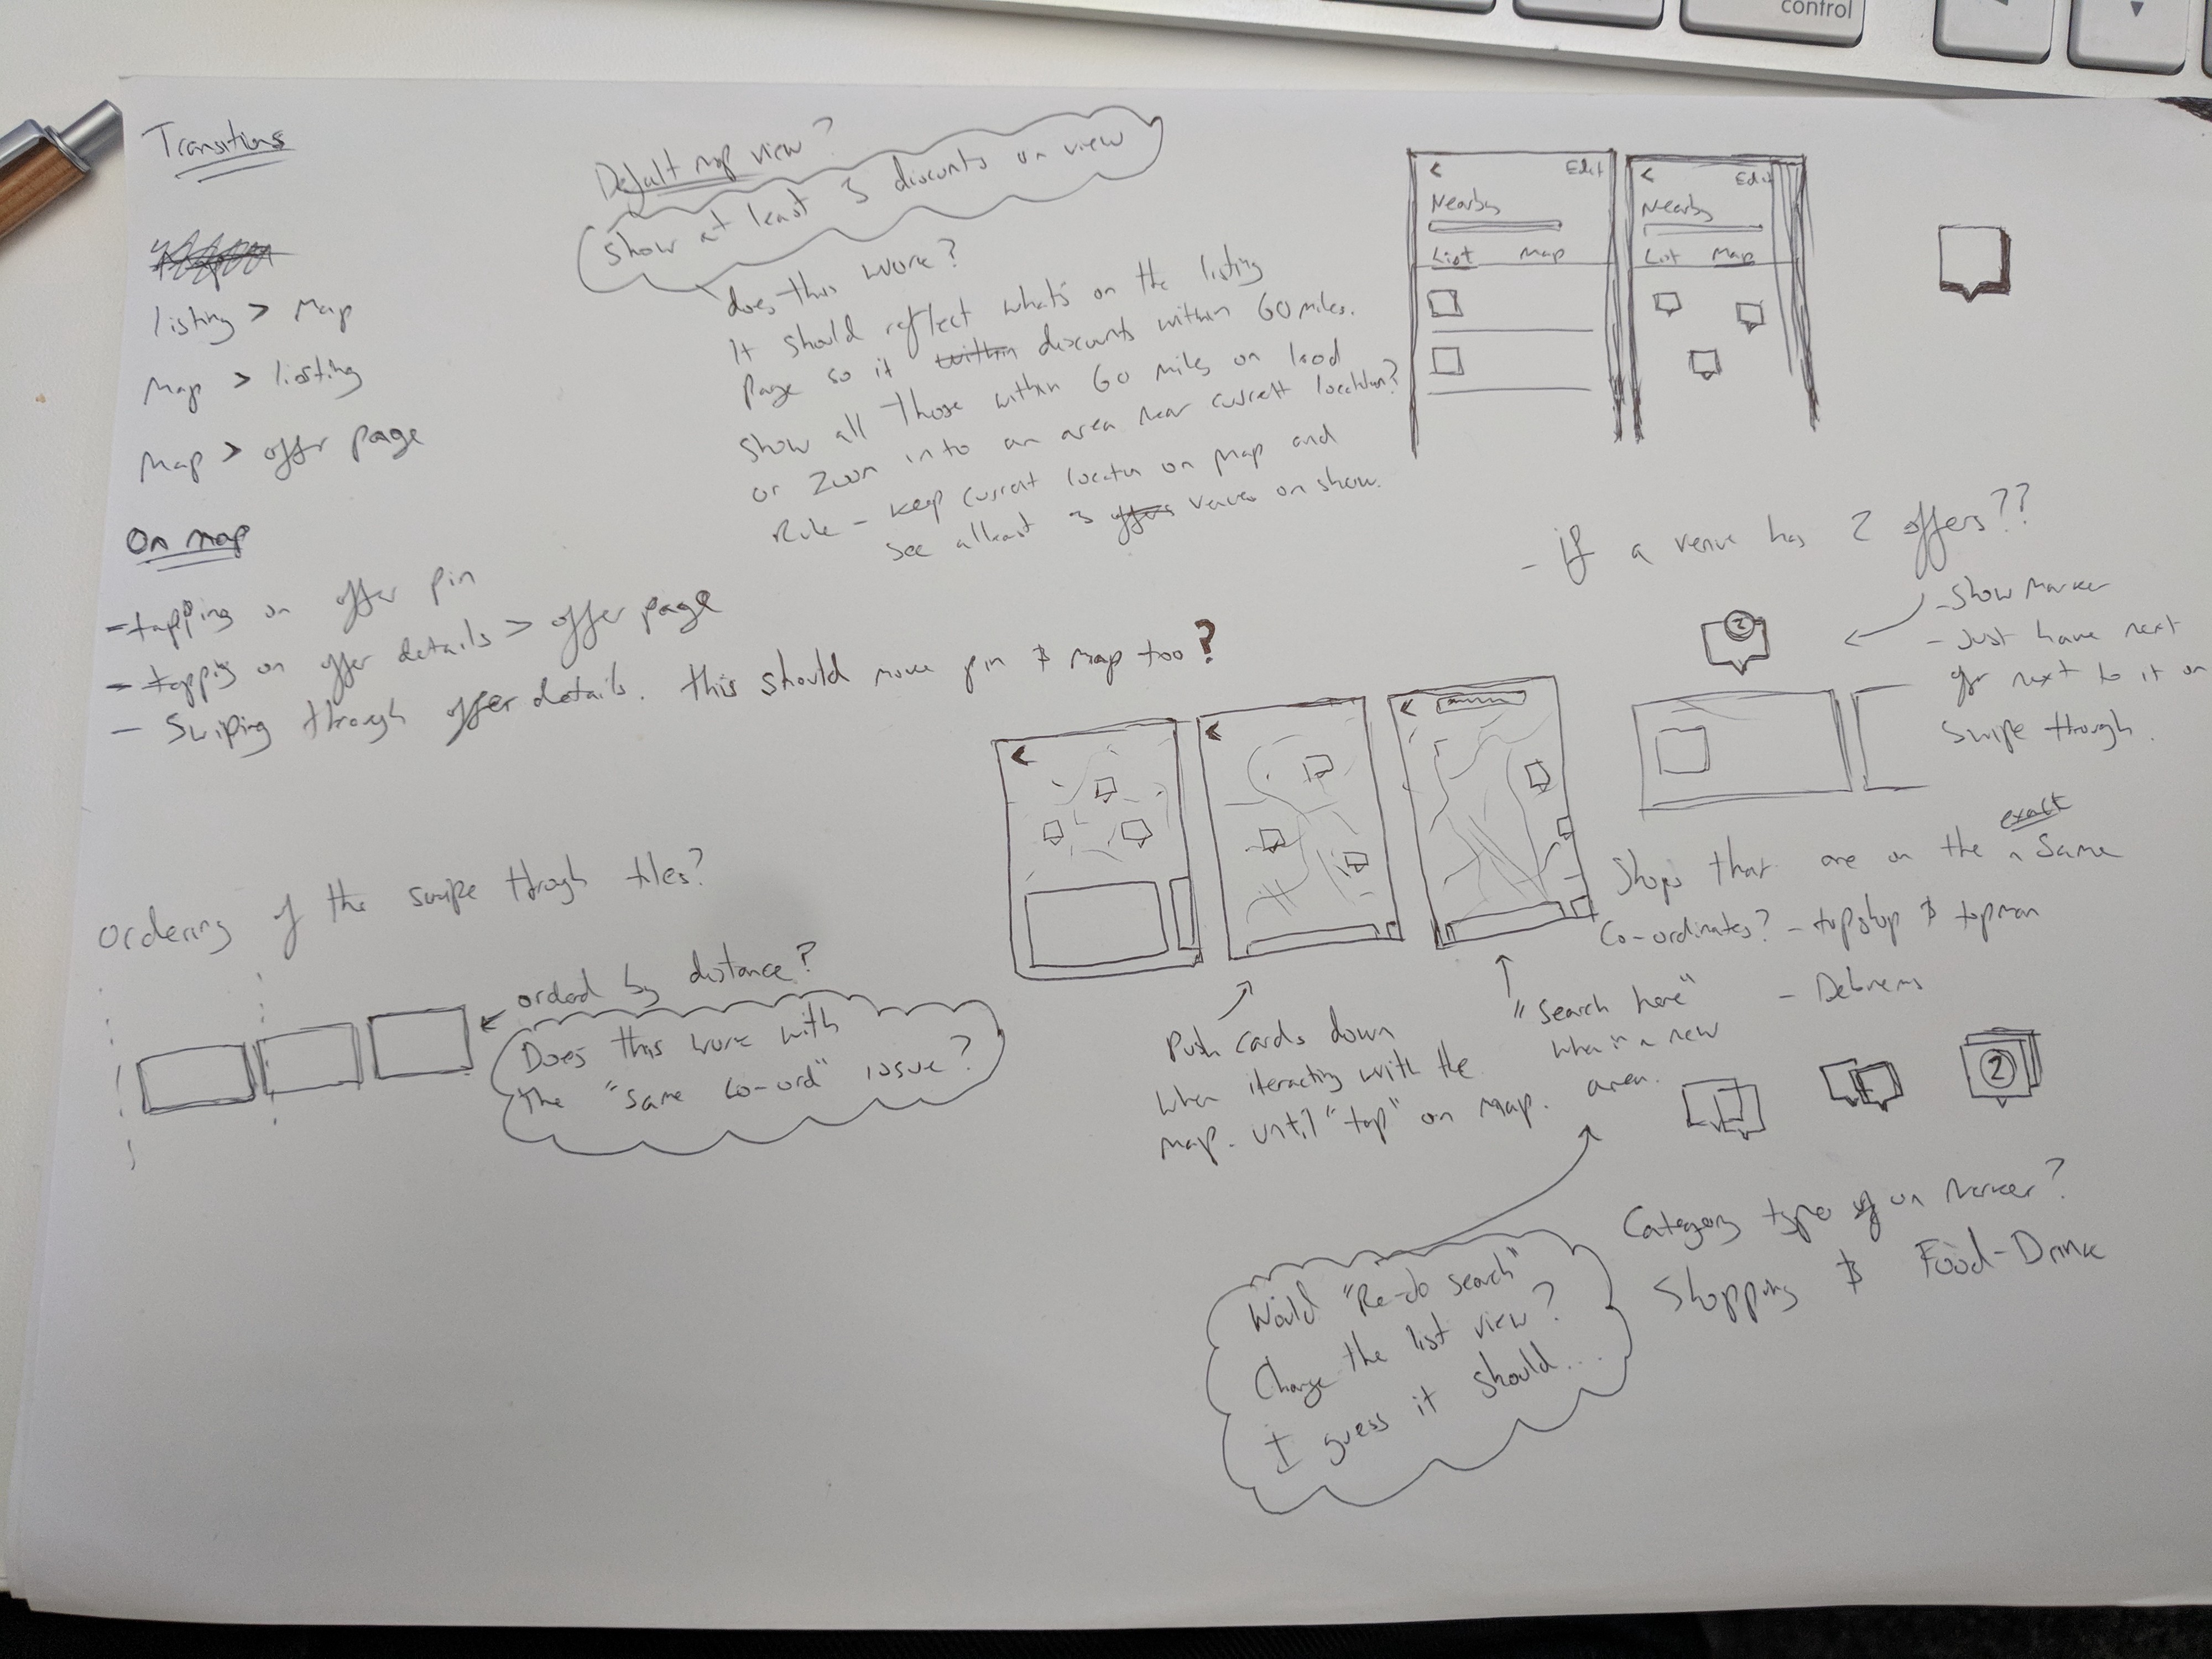 control
Transitions
listing > Map
Map > listing
Map > offer page
On map
- tapping on offer pin
- tapping on offer details > offer page
- Swiping through offer details. this should move pin & map too?
Default map view?
Show at least 3 discounts on view
does this work?
It should reflect what's on the listing
Page so if within discounts within 60 miles.
Show all those within 60 miles on load
or Zoom into an area near current location?
Rule - keep current location on map and
see atleast 3 offers venues on show.
< Edit
Nearby
List Map
< Edit
Nearby
List Map
- if a venue has 2 offers??
- Show Marker
- Just have next
offr next to it on
Swipe through.
2
<
<
<
Shops that are on the exact same
Co-ordinates? - topshop & topman
- Debnems
2
Push cards down
when iteracting with the
map. until "tap" on Map.
"Search here"
when in a new
area.
Ordering of the swipe through tiles?
orded by distance?
Does this work with
the "same co-ord" issue?
Would "Re-do search"
Change the list view?
I guess it should...
Category type of on Marker?
Shopping & Food-Drink